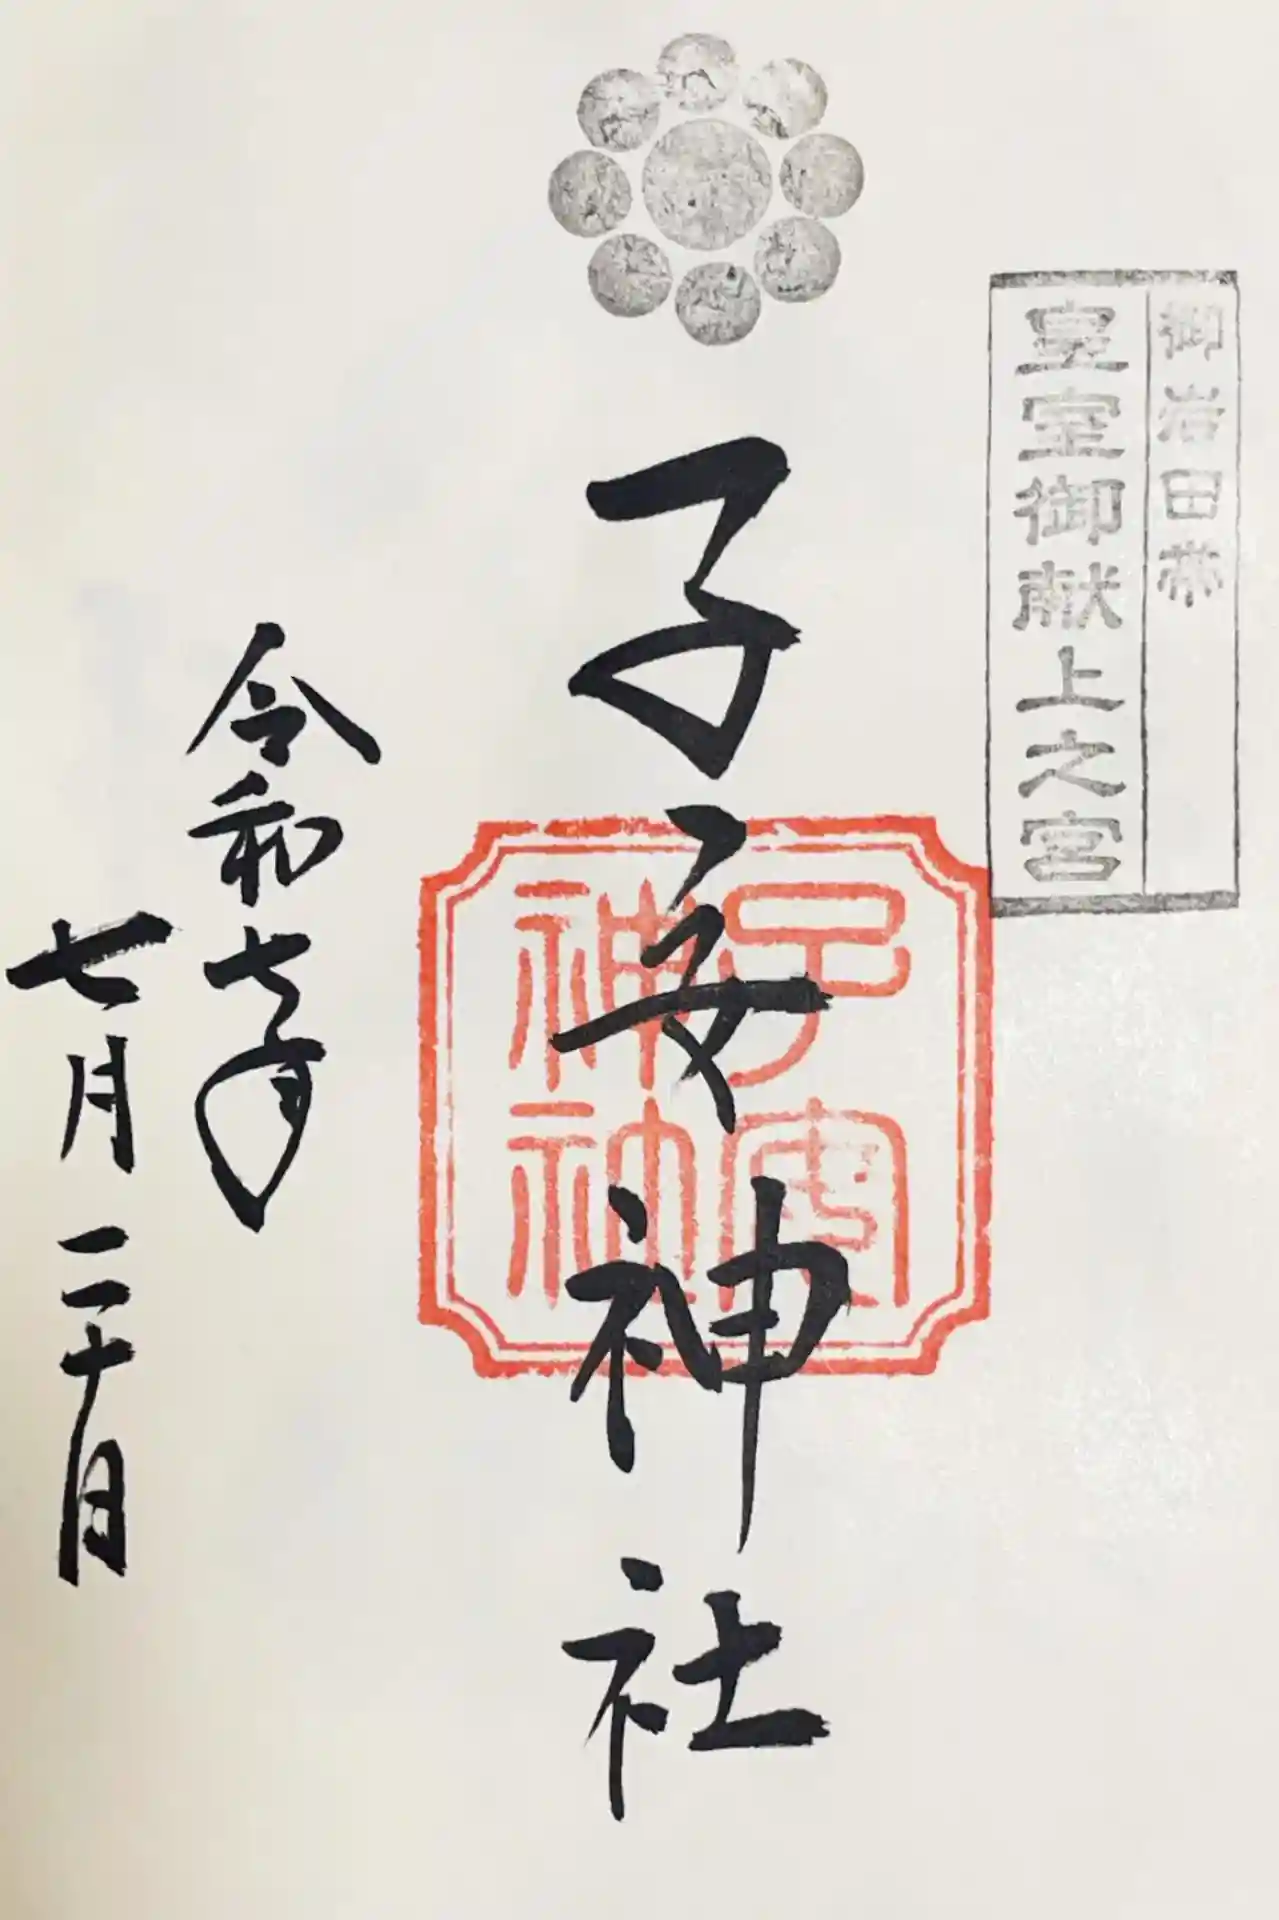 御岩田帯
皇室御献上之宮
子安神社
子安
神社
令和七年
七月二十日